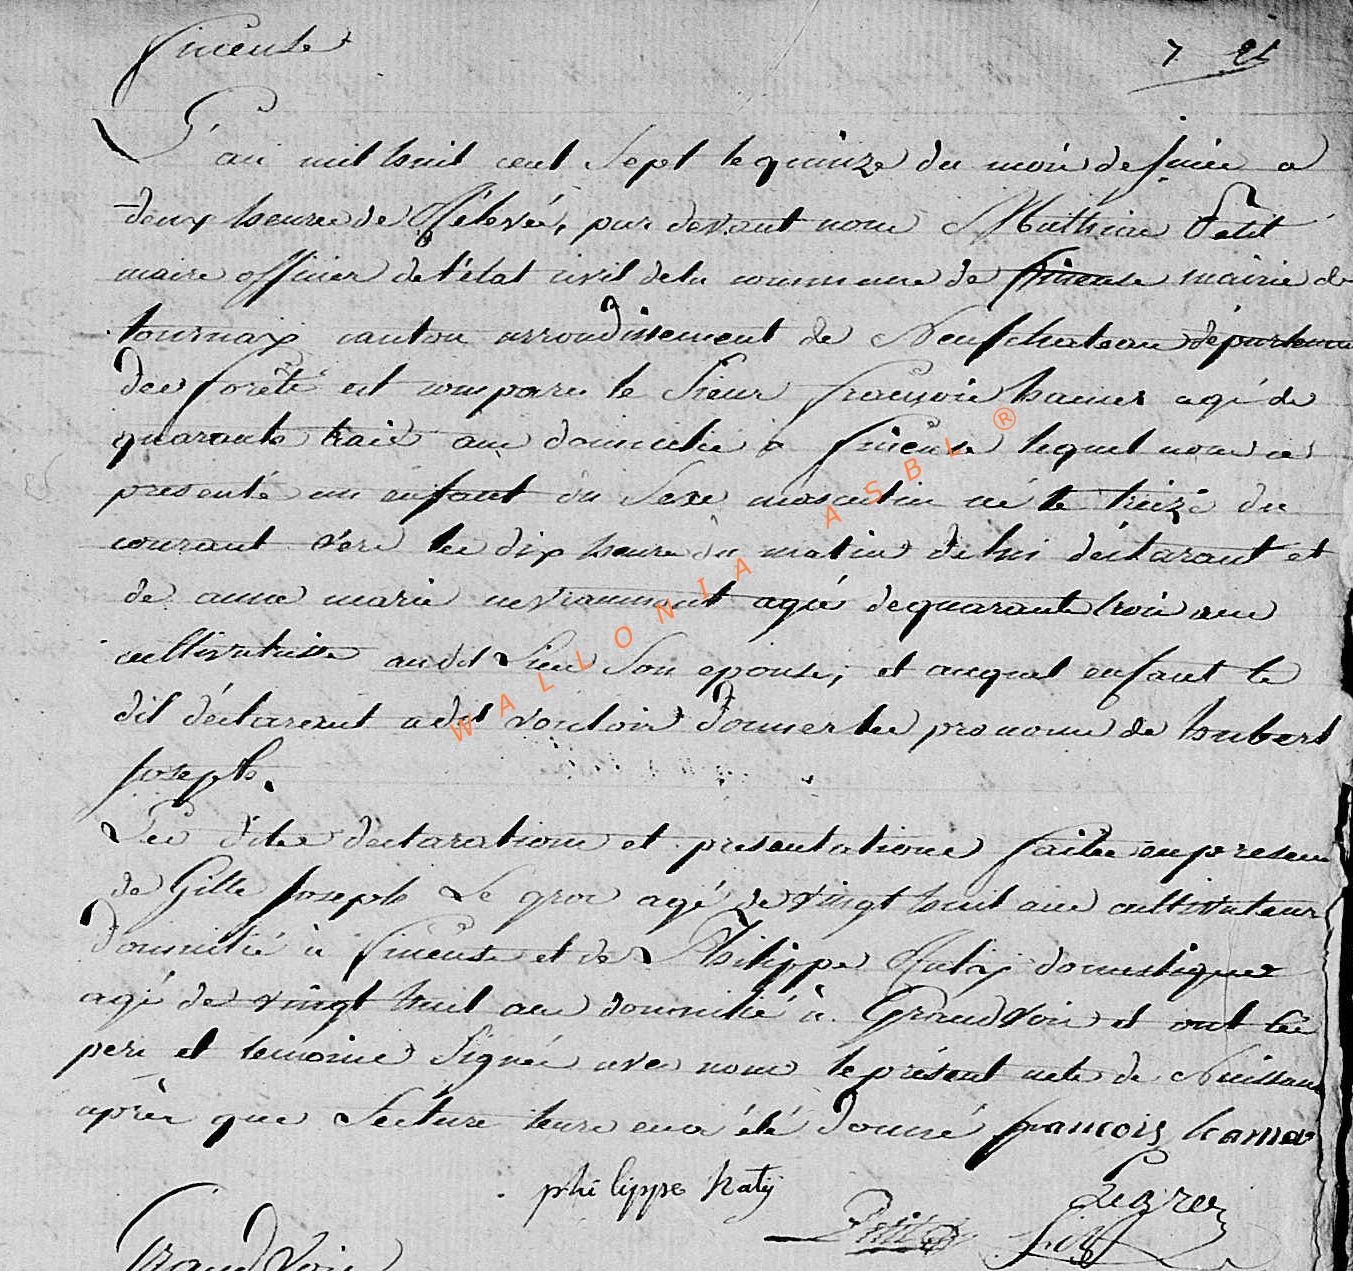 Sineuse
7. 21
L'an mil huit cent Sept le quinze du mois de juin a
deux heures de Rélevée, par devant nous Mathieu Petit
maire officier de l'état civil de la commune de Sineuse mairie de
tournay canton arrondissement de Neufchateau département
des forêts est comparu le Sieur françois hamer agé de
quarante trois ans domicilié a Sineuse lequel nous a
présenté un enfant du Sexe masculin né le treize du
courant vers les dix heures du matin de lui déclarant et
de anne marie agée de quarante trois ans
cultivatrice audit Lieu Son epouse, et auquel enfant le
dit déclarent a dit vouloir donner les prenoms de hubert
joseph.
Les dites declarations et presentations faites en presence
de Gille joseph Le gros agé de vingt huit ans cultivateur
domicilié a Sineuse et de Philippe haty domestique
agé de vingt huit ans domicilié a Grandvoir et ont les
pere et temoins Signés avec nous le présent acte de Naissance
après que Lecture leurs en a été donné françois hamer
philippe haty
Legros
Petit
Grandvoir
WALLONIA ASBL ®